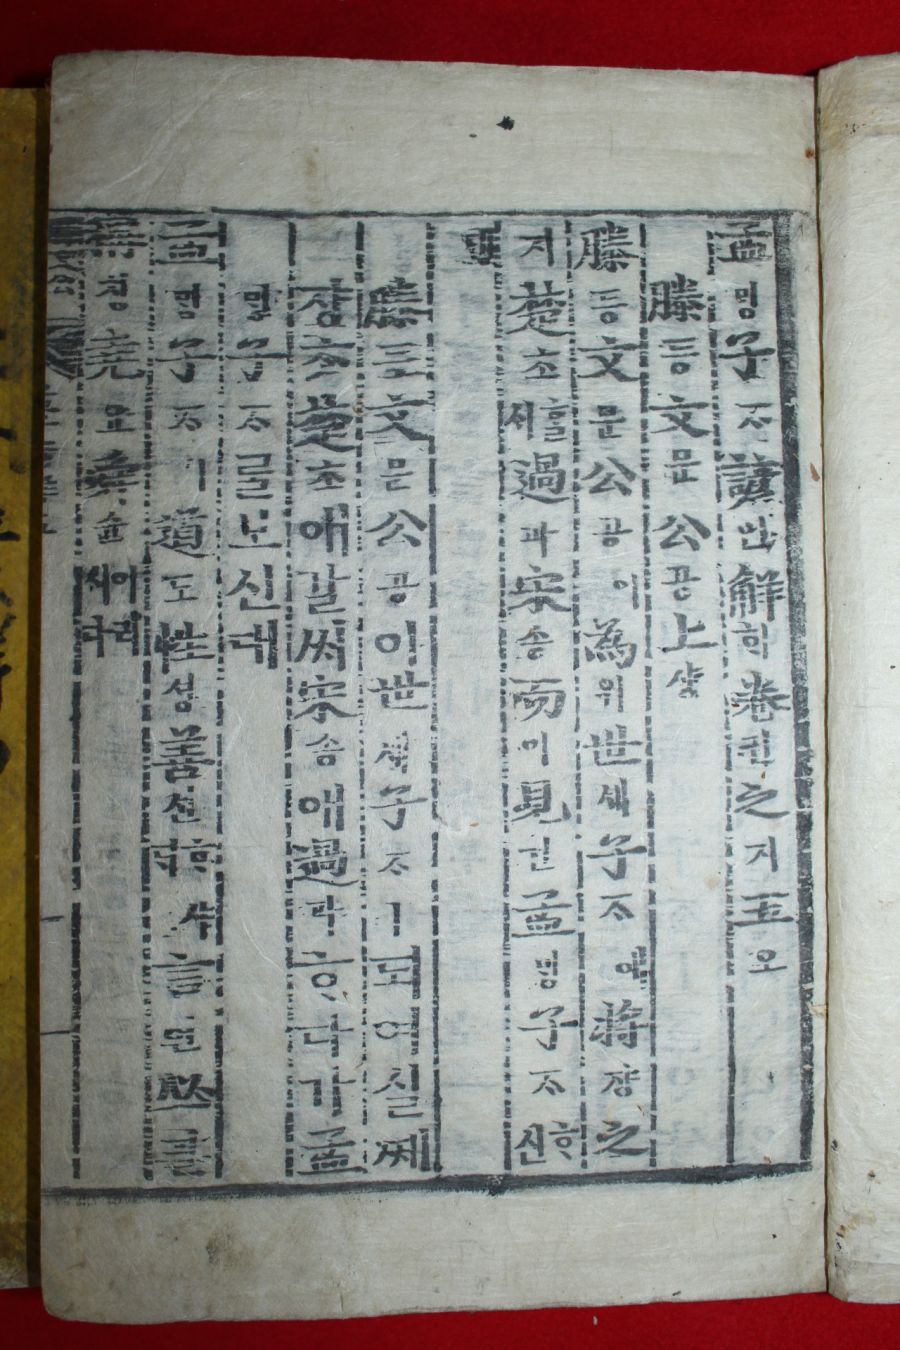 孟밍子ᄌᆞ諺언解ᄒᆡ卷권之지五오
滕등文문公공上샹
滕등文문公공이爲위世셰子ᄌᆞ에將쟝之
지楚초ᄒᆞᆯ시過과宋송而이見견孟밍子ᄌᆞᄒᆞ신
滕등文문公공이世셰子ᄌᆞㅣ되여실ᄶᅦ
쟝ᄎᆞᆺ楚초애갈ᄊᆡ宋송애過과ᄒᆞ다가孟
밍子ᄌᆞᄅᆞᆯ보신대
孟밍子ᄌᆞㅣ道도性셩善션ᄒᆞ샤ᄃᆡ言언必
칭堯요舜슌이러시다